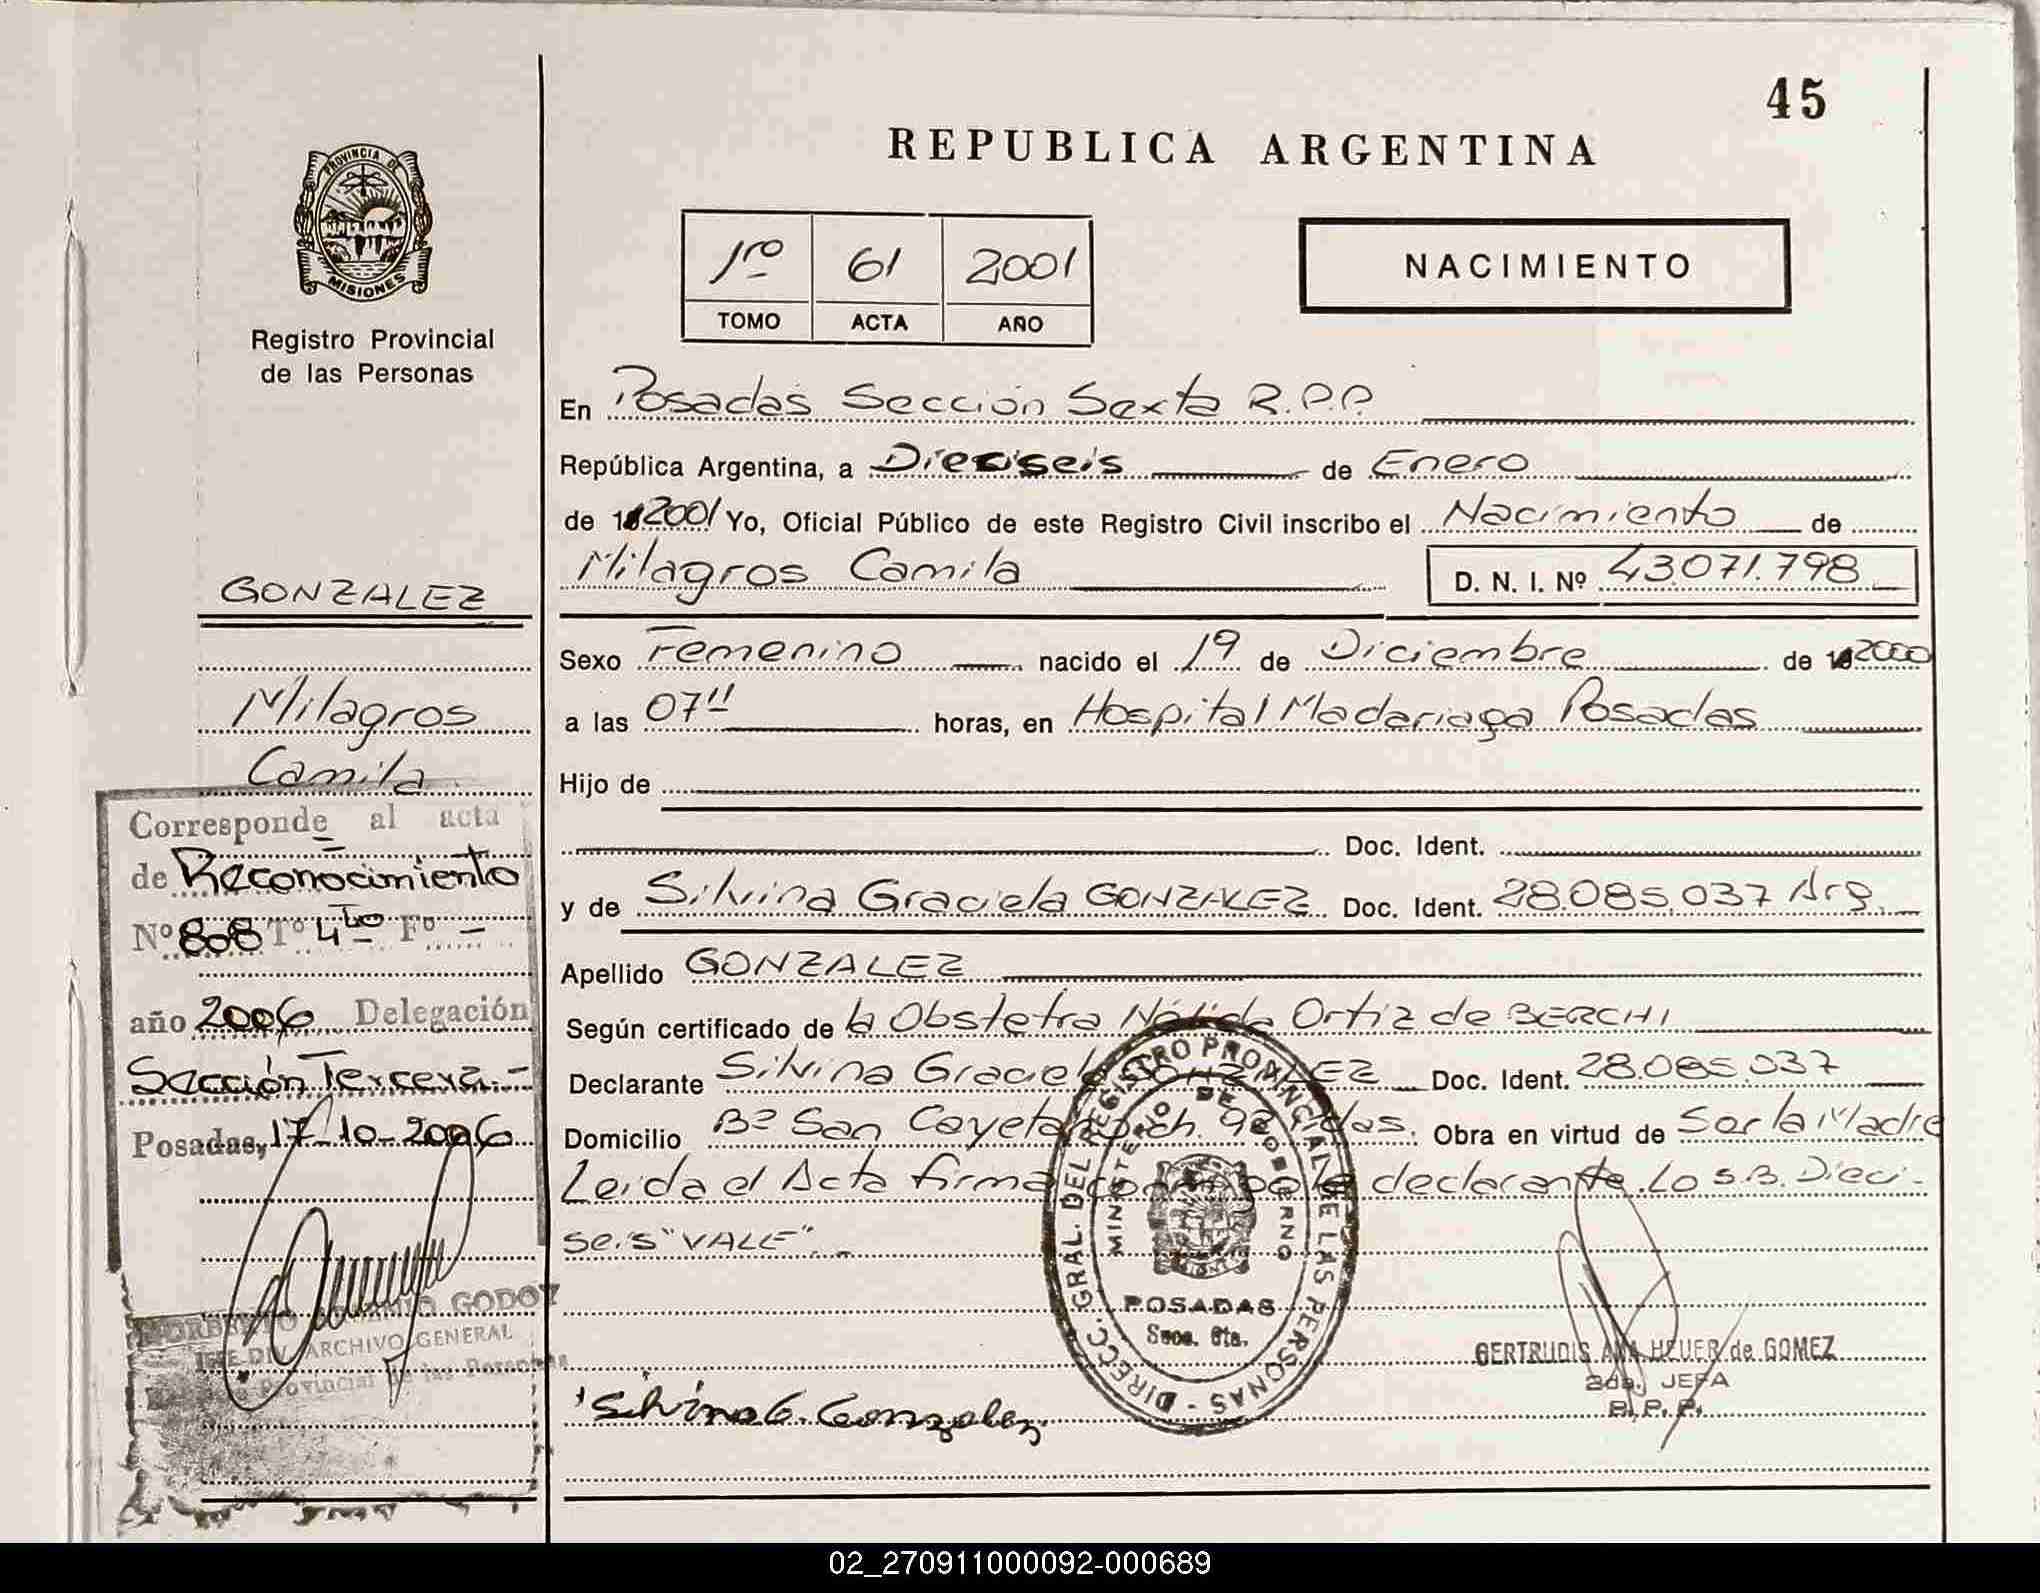 45
REPUBLICA ARGENTINA
PROVINCIA DE
MISIONES
Registro Provincial
de las Personas
1ro 61 2001
TOMO ACTA AÑO
NACIMIENTO
En Posadas Sección Sexta R.P.P.
República Argentina, a Dieciseis de Enero
de 2001 Yo, Oficial Público de este Registro Civil inscribo el Nacimiento de
Milagros Camila D. N. I. Nº 43.071.798
Sexo Femenino nacido el 19 de Diciembre de 2000
a las 07 horas, en Hospital Madariaga Posadas
Hijo de
Doc. Ident.
y de Silvina Graciela GONZALEZ Doc. Ident. 28.085.037 Arg.
Apellido GONZALEZ
Según certificado de la Obstetra Nélida Ortiz de BERCHI
Declarante Silvina Graciela GONZALEZ Doc. Ident. 28.085.037
Domicilio Bº San Cayetano ch. 92 Obra en virtud de Ser la Madre
Leida el Acta firma la declarante. Lo S.B. Dieci-
seis "VALE".
Silvina G. Gonzalez
DIRECC. GRAL. DEL REGISTRO PROVINCIAL DE LAS PERSONAS
MINISTERIO DE GOBIERNO
POSADAS
Secc. 6ta.
GERTRUDIS ANA HEUER de GOMEZ
2da. JEFA
R. P. P.
GONZALEZ
Milagros
Camila
Corresponde al acta
de Reconocimiento
Nº 808 Tº 4to Fº -
año 2006 Delegación
Sección Tercera.-
Posadas, 17-10-2006
NORBERTO GODOY
JEFE DIV. ARCHIVO GENERAL
Provincial de las Personas
02_270911000092-000689